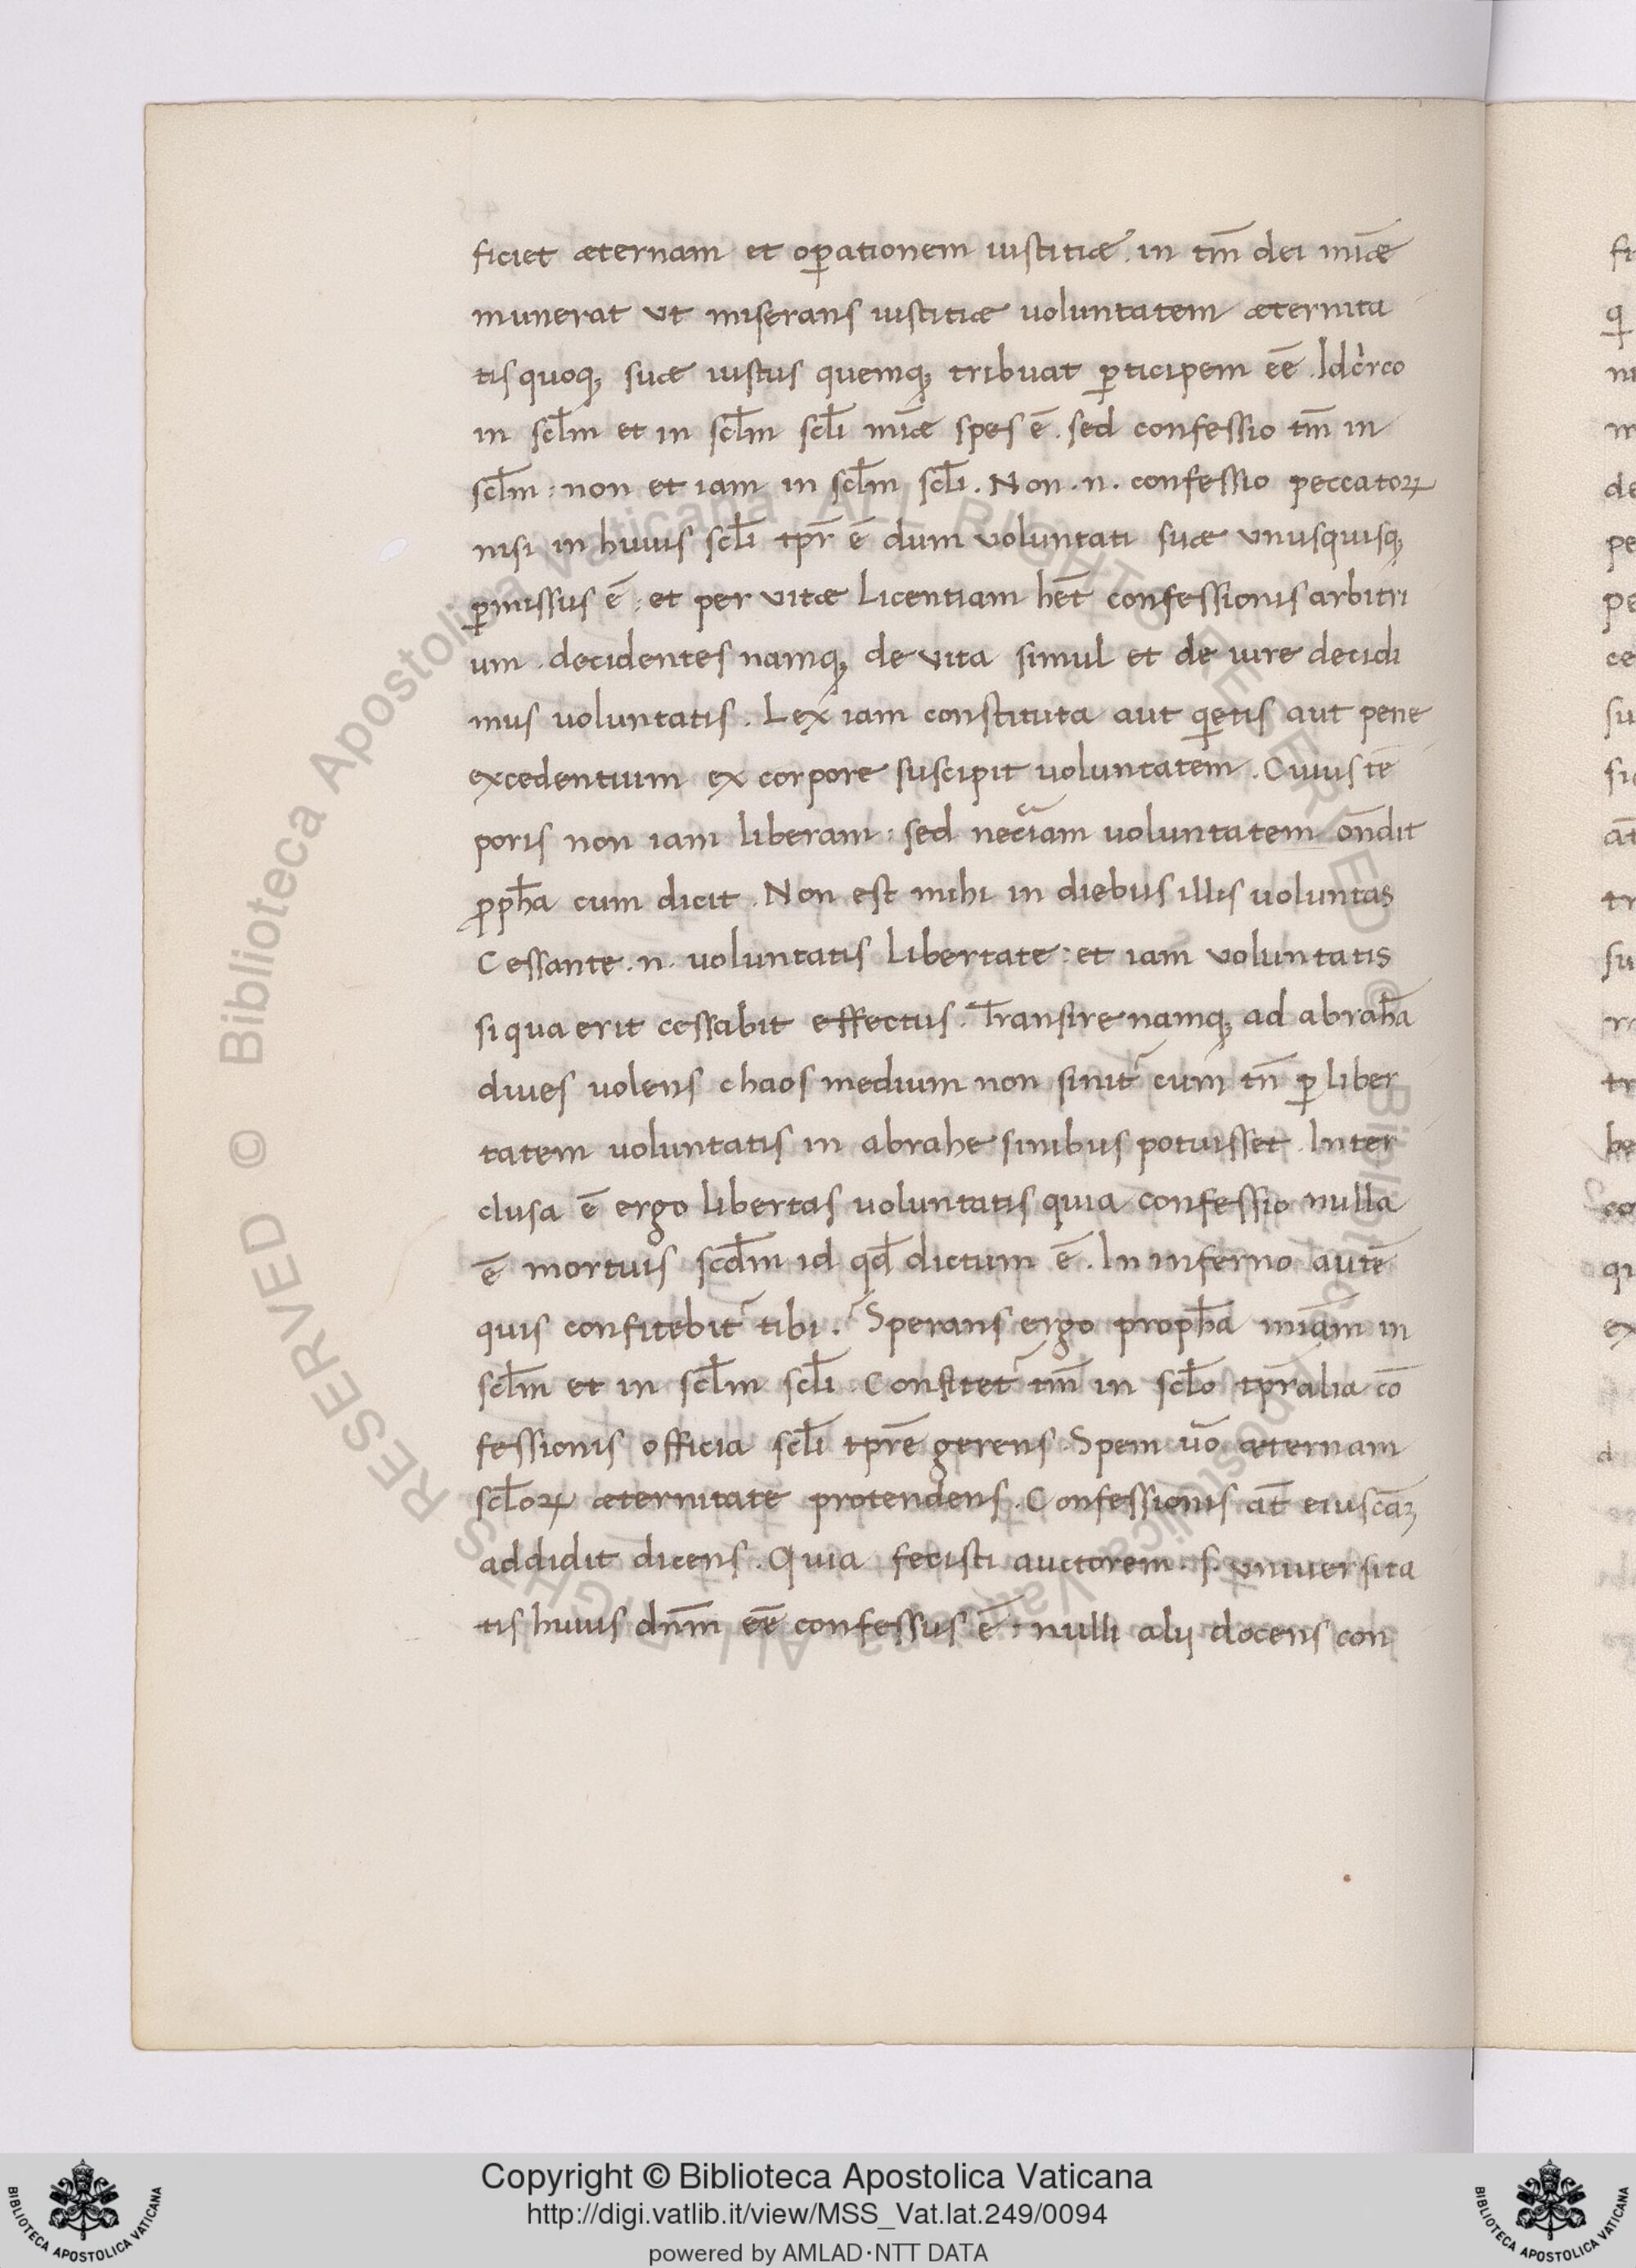 ficiet æternam et op̱ationem iustitiæ. in tm̄ dei mīæ
munerat ut miserans iustitiæ voluntatem æternita
tis quoq; suæ iustus quemq; tribuat ꝑticipem eē. Idcirco
in scl̄m et in scl̄m scl̄i mīæ spes ē. sed confessio tm̄ in
scl̄m: non et iam in scl̄m scl̄i. Non .n. confessio peccatoꝝ
nisi in huius scl̄i tpr̄ ē dum voluntati suæ unusquisq;
ꝑmissus ē: et per vitæ licentiam hēt confessionis arbitri
um. decidentes namq; de vita simul et de iure decidi
mus voluntatis. Lex iam constituta aut qietis aut pene
excedentium ex corpore suscipit voluntatem. Cuius tē
poris non iam liberam: sed neciam voluntatem ōndit
ꝓph̄a cum dicit. Non est mihi in diebus illis voluntas
Cessante .n. voluntatis libertate: et iam voluntatis
si qua erit cessabit effectus. Transire namq; ad abrahā
dives volens chaos medium non sinit᷑ cum tn̄ ꝑ liber
tatem voluntatis in abrahe sinibus potuisset. Inter
clusa ē ergo libertas voluntatis quia confessio nulla
ē mortuis scd̄m id qd̄ dictum ē. In inferno autē
quis confitebit᷑ tibi. Sperans ergo proph̄a mīam in
scl̄m et in scl̄m scl̄i. Confitet᷑ tm̄ in scl̄o tpr̄alia cō
fessionis officia scl̄i tpr̄e gerens. Spem v̄o æternam
scl̄oꝝ æternitate protendens. Confessionis āt eius cāꝫ
addidit dicens. Quia fecisti auctorem .s. universita
tis huius dn̄m eē confessus ē: nulli alij docens con
Copyright © Biblioteca Apostolica Vaticana
http://digi.vatlib.it/view/MSS_Vat.lat.249/0094
powered by AMLAD·NTT DATA
BIBLIOTECA APOSTOLICA VATICANA
BIBLIOTECA APOSTOLICA VATICANA
© Biblioteca Apostolica Vaticana ALL RIGHTS RESERVED © Biblioteca Apostolica Vaticana ALL RIGHTS RESERVED